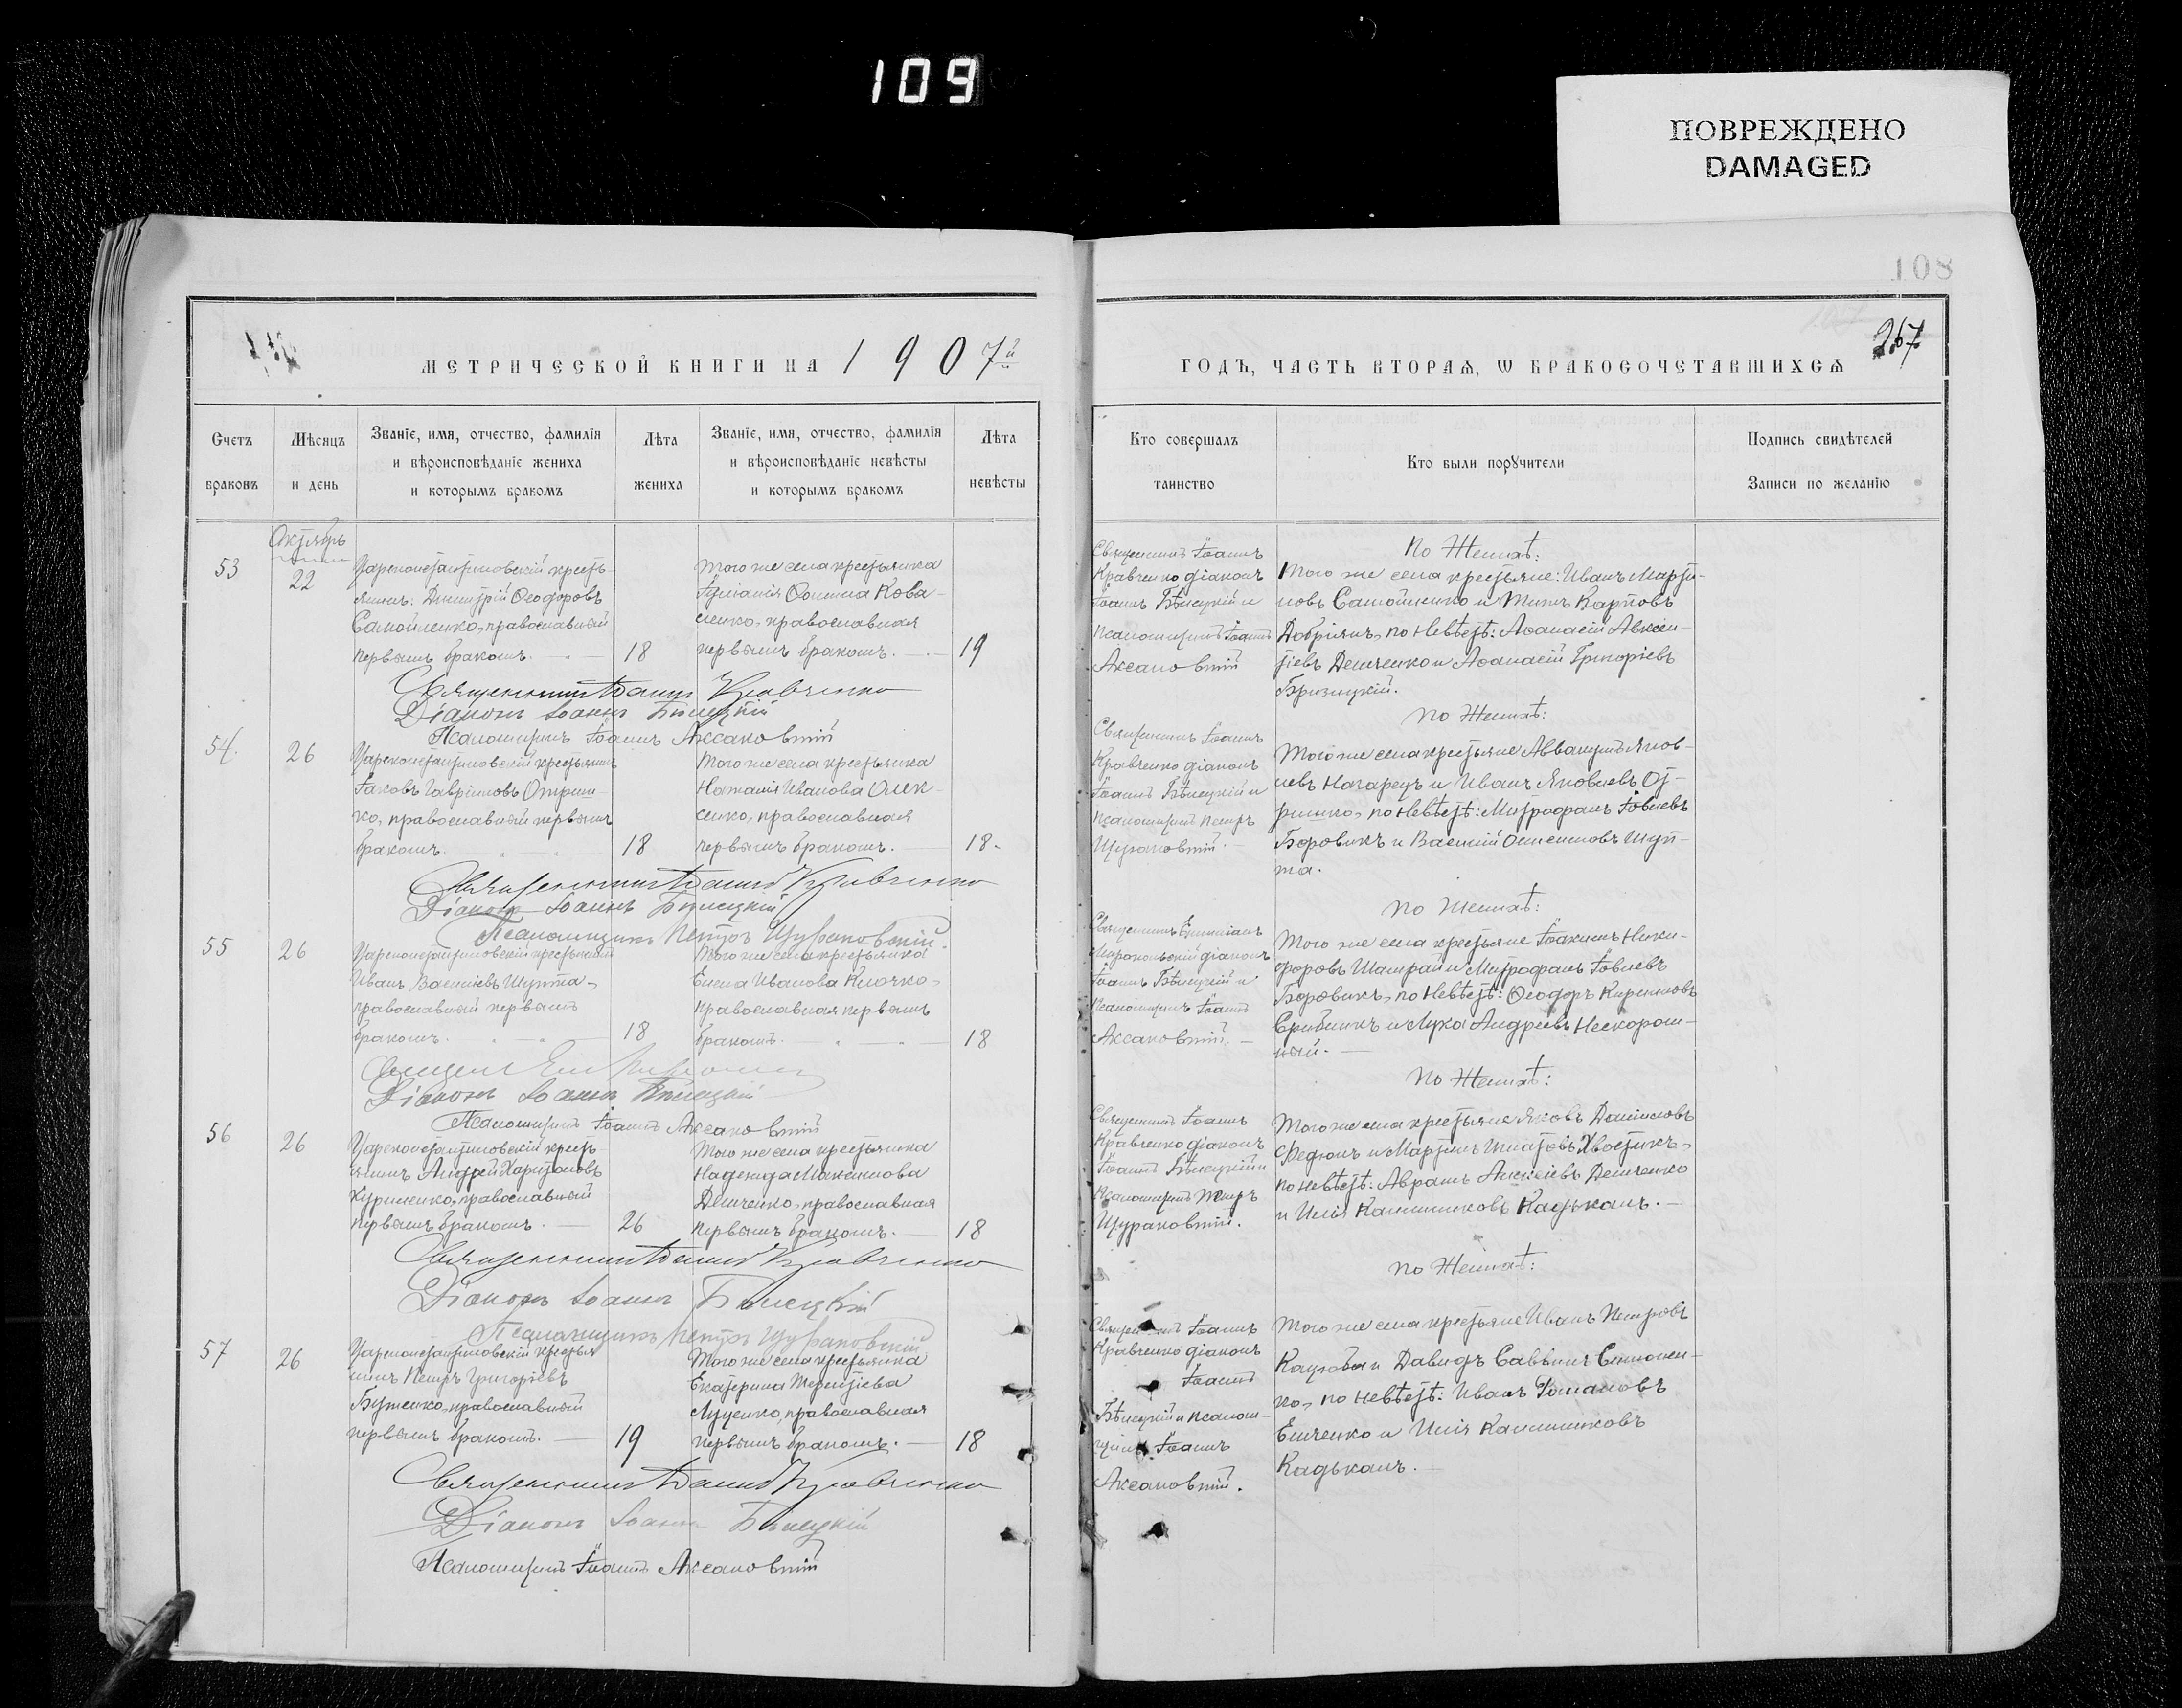 109
ПОВРЕЖДЕНО
DAMAGED
108
267
МЕТРИЧЕСКОЙ КНИГИ НА 1907й
ГОДЪ, ЧАСТЬ ВТОРАЯ, Ѡ БРАКОСОЧЕТАВШИХСЯ
Счетъ браковъ
Мѣсяцъ и день
Званіе, имя, отчество, фамилія
и вѣроисповѣданіе жениха
и которымъ бракомъ
Лѣта жениха
Званіе, имя, отчество, фамилія
и вѣроисповѣданіе невѣсты
и которымъ бракомъ
Лѣта невѣсты
Кто совершалъ таинство
Кто были порꙋчители
Подпись свидѣтелей
Записи по желанію
Октябрь
53
22
Цареконстантиновскій кресть-
янинъ: Димитрій Ѳеодоровъ
Самойленко, православный
первымъ бракомъ.
18
Того же села крестьянка
Ѳомина Кова-
ленко, православная
первымъ бракомъ.
19
Священникъ Іоаннъ
Кравченко діаконъ
Іоаннъ Бѣлецкій и
псаломщикъ Іоаннъ
Аксановскій
По Женихѣ:
Того же села крестьяне: Иванъ Марти-
новъ Самойленко и Карповъ
по Невѣстѣ: Аѳанасій Авксен-
тіевъ Демченко и Аѳанасій Григоріевъ
Бризицкій.
Священникъ Іоаннъ Кравченко
Діаконъ Іоаннъ Бѣлецкій
Псаломщикъ Іоаннъ Аксановскій
54.
26
Цареконстантиновскій крестьянинъ
Іаковъ Гавріиловъ Отриш-
ко, православный первымъ
бракомъ.
18
Того же села крестьянка
Наталія Иванова Олек-
сенко, православная
первымъ бракомъ.
18.
Священникъ Іоаннъ
Кравченко діаконъ
Іоаннъ Бѣлецкій и
псаломщикъ Петръ
Щурановскій.
По Женихѣ:
Того же села крестьяне Аввакумъ Яков-
левъ и Иванъ Яковлевъ От-
ришко, по Невѣстѣ: Митрофанъ Іовлевъ
Боровикъ и Василій Шуп-
та.
Священникъ Іоаннъ Кравченко
Діаконъ Іоаннъ Бѣлецкій
Псаломщикъ Петръ Щурановскій.
55
26
Цареконстантиновскій крестьянинъ
Иванъ Васильевъ Шупта,
православный первымъ
бракомъ.
18
Того же села крестьянка
Елена Иванова Клочко,
православная первымъ
бракомъ.
18
Священникъ
діаконъ
Іоаннъ Бѣлецкій и
Псаломщикъ Іоаннъ
Аксановскій.
По Женихѣ:
Того же села крестьяне Іоакимъ Ники-
форовъ Шамрай и Митрофанъ Іовлевъ
Боровикъ, по Невѣстѣ: Ѳеодоръ Кирилловъ
и Лука Андреевъ Нескором-
ный.
Діаконъ Іоаннъ Бѣлецкій
Псаломщикъ Іоаннъ Аксановскій
56
26
Цареконстантиновскій кресть-
янинъ Андрей Харитоновъ
Куриленко, православный
первымъ бракомъ.
26
Того же села крестьянка
Надежда Максимова
Демченко, православная
первымъ бракомъ.
18
Священникъ Іоаннъ
Кравченко діаконъ
Іоаннъ Бѣлецкій и
Псаломщикъ Петръ
Щурановскій.
По Женихѣ:
Того же села крестьяне Яковъ Даниловъ
Федюнъ и Мартинъ Игнатовъ Хвостикъ,
по Невѣстѣ: Аврамъ Алексіевъ Демченко
и Илія Каллиниковъ Кадькалъ.
Священникъ Іоаннъ Кравченко
Діаконъ Іоаннъ Бѣлецкій
Псаломщикъ Петръ Щурановскій
57
26
Цареконстантиновскій крестья
нинъ Петръ Григоріевъ
Бутенко, православный
первымъ бракомъ.
19
Того же села крестьянка
Екатерина Терентіева
Луценко, православная
первымъ бракомъ.
18
Священникъ Іоаннъ
Кравченко діаконъ
Іоаннъ
Бѣлецкій и псалом-
щикъ Іоаннъ
Аксановскій.
По Женихѣ:
Того же села крестьяне Иванъ Петровъ
Кацюба и Давидъ Саввинъ Симонен-
ко, по Невѣстѣ: Иванъ Романовъ
Емченко и Илія Каллиниковъ
Кадькалъ.
Священникъ Іоаннъ Кравченко
Діаконъ Іоаннъ Бѣлецкій
Псаломщикъ Іоаннъ Аксановскій